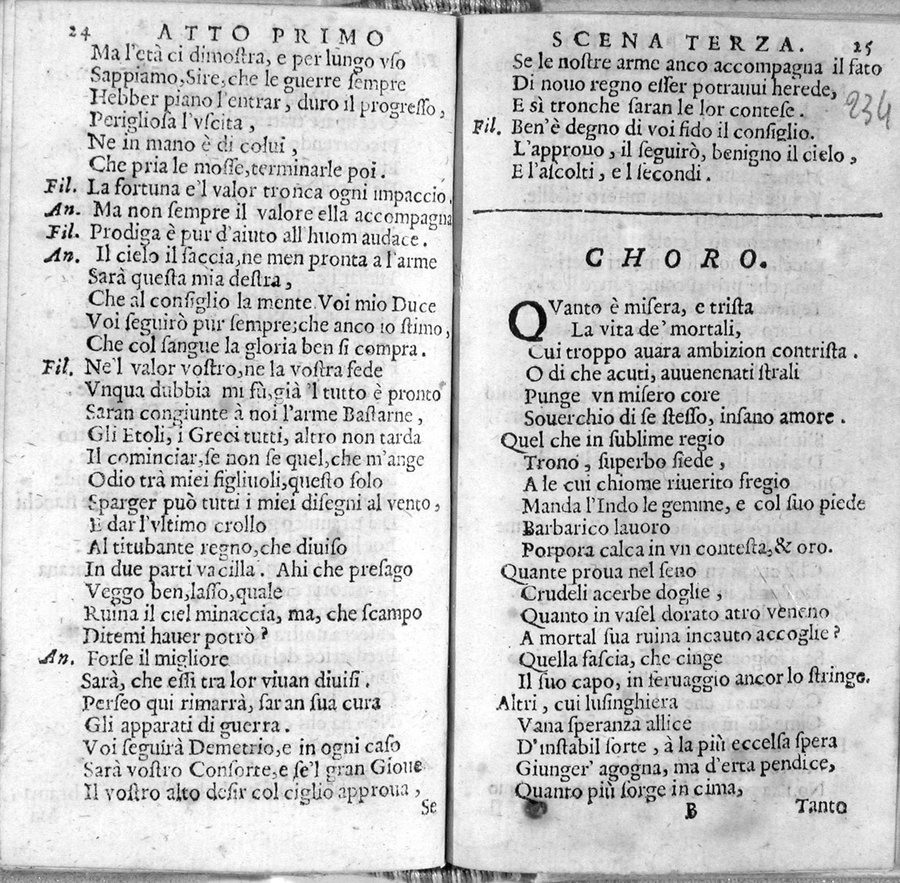 24 ATTO PRIMO
Ma l'età ci dimoſtra, e per lungo vſo
Sappiamo, Sire, che le guerre ſempre
Hebber piano l'entrar, duro il progreſſo,
Periglioſa l'vſcita,
Ne in mano è di colui,
Che pria le moſſe, terminarle poi.
Fil. La fortuna e'l valor tronca ogni impaccio.
An. Ma non ſempre il valore ella accompagna
Fil. Prodiga è pur d'aiuto all'huom audace.
An. Il cielo il faccia, ne men pronta a l'arme
Sarà queſta mia deſtra,
Che al conſiglio la mente. Voi mio Duce
Voi ſeguirò pur ſempre; che anco io ſtimo,
Che col ſangue la gloria ben ſi compra.
Fil. Ne'l valor voſtro, ne la voſtra fede
Vnqua dubbia mi fù, già 'l tutto è pronto
Saran congiunte à noi l'arme Baſtarne,
Gli Etoli, i Greci tutti, altro non tarda
Il cominciar, ſe non ſe quel, che m'ange
Odio trà miei figliuoli, queſto ſolo
Sparger può tutti i miei diſegni al vento,
E dar l'vltimo crollo
Al titubante regno, che diuiſo
In due parti vacilla. Ahi che preſago
Veggo ben, laſſo, quale
Ruina il ciel minaccia, ma, che ſcampo
Ditemi hauer potrò?
An. Forſe il migliore
Sarà, che eſſi tra lor viuan diuiſi.
Perſeo qui rimarrà, ſaran ſua cura
Gli apparati di guerra.
Voi ſeguirà Demetrio, e in ogni caſo
Sarà voſtro Conſorte, e ſe'l gran Gioue
Il voſtro alto deſir col ciglio approua,
Se
SCENA TERZA. 25
Se le noſtre arme anco accompagna il fato
Di nouo regno eſſer potrauui herede,
E sì tronche ſaran le lor conteſe.
234
Fil. Ben'è degno di voi fido il conſiglio.
L'approuo, il ſeguirò, benigno il cielo,
E l'aſcolti, e l ſecondi.
CHORO.
QVanto è miſera, e triſta
La vita de' mortali,
Cui troppo auara ambizion contriſta.
O di che acuti, auuenenati ſtrali
Punge vn miſero core
Souerchio di ſe ſteſſo, inſano amore.
Quel che in ſublime regio
Trono, ſuperbo ſiede,
A le cui chiome riuerito fregio
Manda l'Indo le gemme, e col ſuo piede
Barbarico lauoro
Porpora calca in vn conteſta, & oro.
Quante proua nel ſeno
Crudeli acerbe doglie,
Quanto in vaſel dorato atro veneno
A mortal ſua ruina incauto accoglie?
Quella faſcia, che cinge
Il ſuo capo, in ſeruaggio ancor lo ſtringe.
Altri, cui luſinghiera
Vana ſperanza allice
D'inſtabil ſorte, à la più eccelſa ſpera
Giunger' agogna, ma d'erta pendice,
Quanto più ſorge in cima,
B Tanto